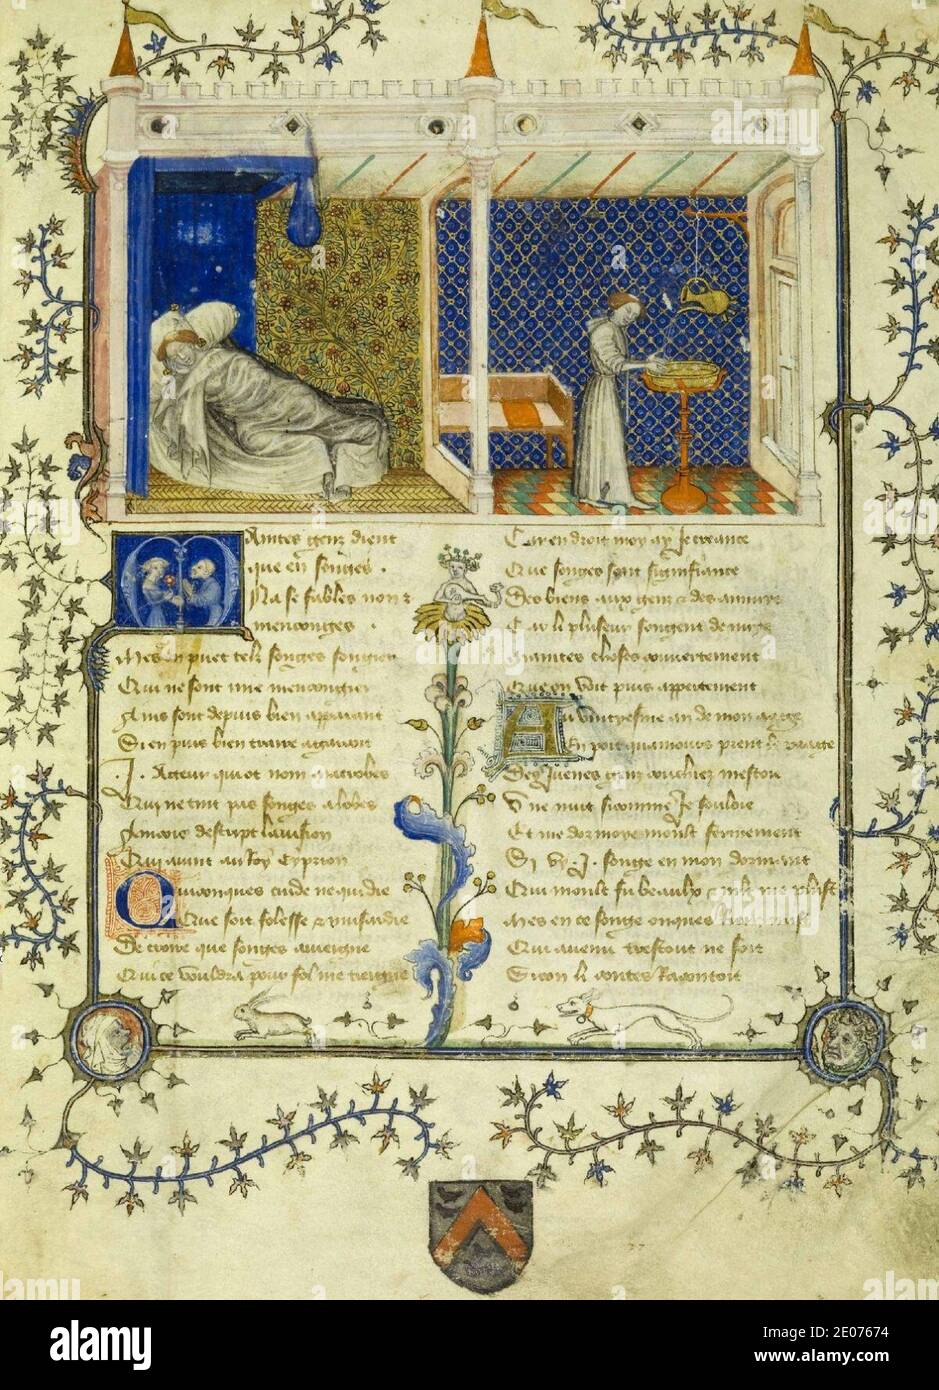 Maintes genz dient
que en songes
Na se fables non z
mencongex
Mes en puet telz songes songier
Qui ne sont mie mencongier
Ains sont depuis bien apparant
Si en puis bien traire a garant
.J. Acteur qui ot nom macrobes
Qui ne tint pas songes a lobes
Aincois descript la vision
Qui avint au Roy Cyprion
Quiconques cuide ne qui die
Que soit folesse & musardie
De croire que songes aveigne
Qui ce vouldra pour fol me tieigne
Car en droit moy ay Je creance
Que songes sont signifiance
Des biens aux genz & des anuys
Car li pluseur songent de nuys
Maintes choses couvertement
Que en voit puis appertement
Au vintiesme an de mon aage
En point quamours prent le paage
Des Juenes genz couchiez mestoie
Une nuit si comme Je souloie
Et me dormoye moult forment
Si vy .J. songe en mon dormant
Qui moult fu beaulx & mlt me plust
Mes en ce songe onques Riens nust
Qui avenu trestout ne soit
Si con li contes Racontoit
alamy
alamy
Image ID: 2E07674
www.alamy.com